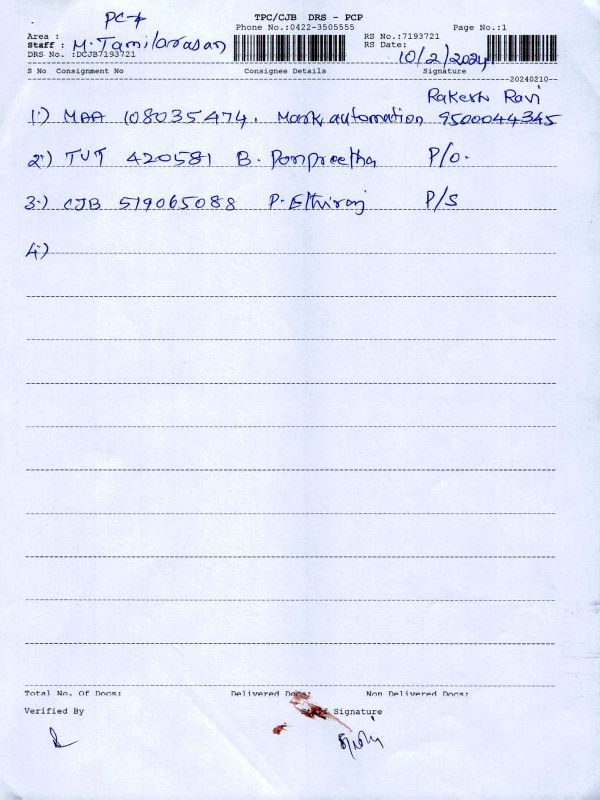 PC-4
TPC/CJB DRS - PCP
Phone No.:0422-3505555
Page No.:1
Area :
RS No.:7193721
Staff : M. Tamilarasan
RS Date: 10/2/2024
DRS No. :DCJB7193721
S No Consignment No Consignee Details Signature
20240210
Rakesh Ravi
1) MAA 108035474. Mark automation 9500044345
2) TUT 420581 B. Ponpreetha P/o.
3) CJB 519065088 P. Ethiraj P/S
4)
Total No. Of Docs: Delivered Docs: Non Delivered Docs:
Verified By Staff Signature